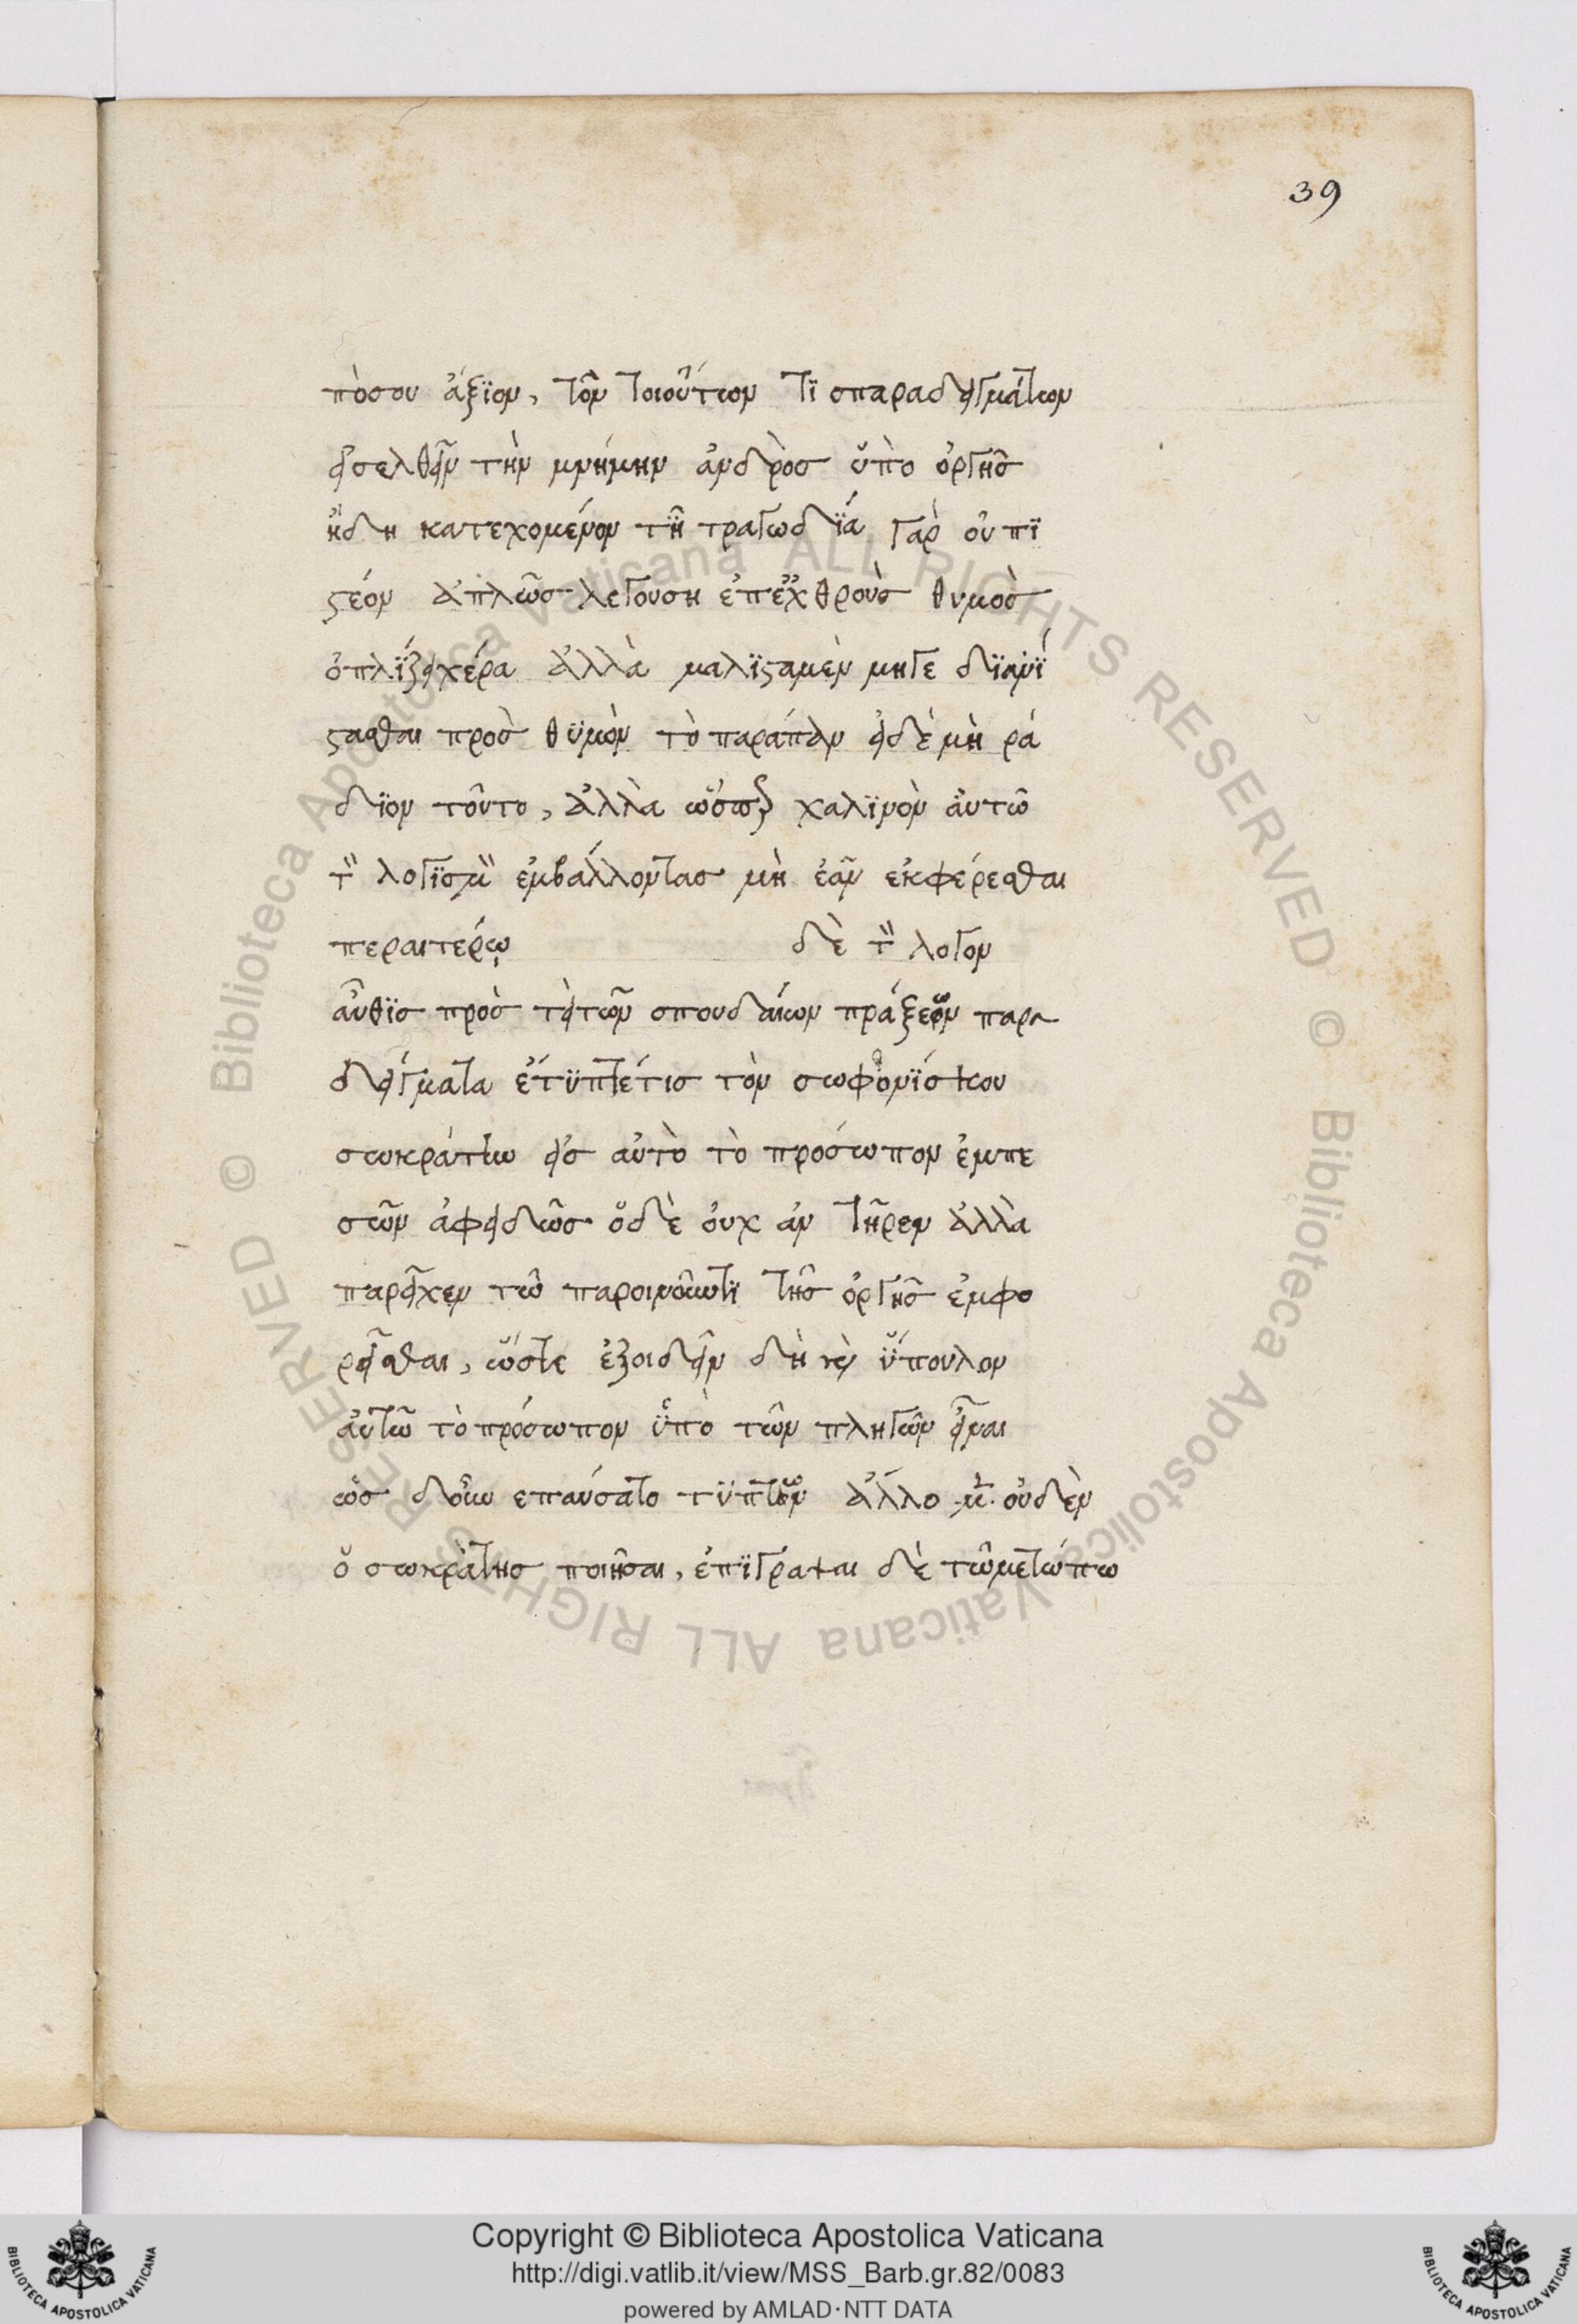 39
πόσου ἄξϊον, τῶν τοιούτων τϊ σπαραδειγμάτων
εἰσελθεῖν τὴν μνήμην ἀνδρὸσ ὕπὸ ὀργῆσ
ἤδη κατεχομένον τῆ τραγωδϊά γαρ οὐ πϊ
ςέον ἁπλῶσ λεγουση ἐπεχθροὺσ θυμοσ
ὁπλϊζειχέρα ἀλλὰ μαλϊςαμεν μητε δϊανϊ
ςασθαι προσ θϋμὸν τὸ παράπαν εἰδὲ μὴ ρά
δϊον τοῦτο, ἀλλὰ ὥσπερ χαλϊνὸν ἀυτῶ
τ̀̀ λογϊσμ̀̀ ἐμβαλλοντασ μὴ ἐᾶν ἐκφέρεσθαι
περαιτέρω δὲ τ̀̀ λογον
αὖθϊσ προσ τὰτῶν σπουδαίων πράξεων παρα
δείγματα ἐτϋπτέτισ τὸν σωφρονϊσκου
σωκράτην εἰσ αὐτὸ τὸ πρόσωπον ἐμπε
σῶν ἀφειδῶσ ὅδὲ οὐχ ἀν τῆρεν ἀλλὰ
παρεῖχεν τῶ παροινοῦντϊ τῆσ ὀργῆσ ἐμφο
ρεῖσθαι, ὥστε ἐξοιδεῖν δὴ καὶ ὕπουλον
αὐτῶ τὸ πρόσωπον ὑπὸ τῶν πληγῶν εἶναι
ὡσ δοὖν επαύσατο τϋπτων ἀλλο μὲν οὐδὲν
ὅ σωκράτησ ποιῆσαι, ἐπϊγράψαι δὲ τῶμετώπω
Copyright © Biblioteca Apostolica Vaticana
http://digi.vatlib.it/view/MSS_Barb.gr.82/0083
powered by AMLAD·NTT DATA